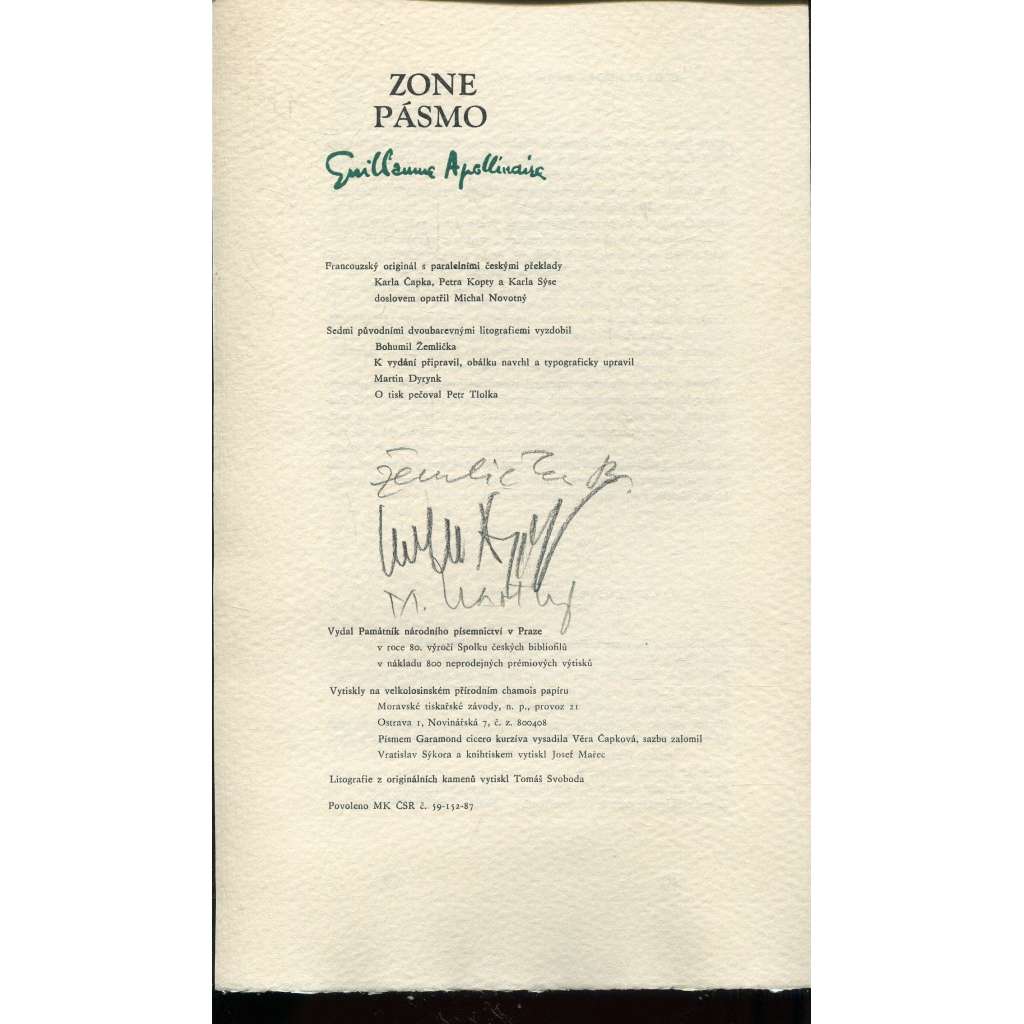 ZONE
PÁSMO
Guillauma Apollinaira
Francouzský originál s paralelními českými překlady
Karla Čapka, Petra Kopty a Karla Sýse
doslovem opatřil Michal Novotný
Sedmi původními dvoubarevnými litografiemi vyzdobil
Bohumil Žemlička
K vydání připravil, obálku navrhl a typograficky upravil
Martin Dyrynk
O tisk pečoval Petr Tlolka
Žemlička B.
M.
Vydal Památník národního písemnictví v Praze
v roce 80. výročí Spolku českých bibliofilů
v nákladu 800 neprodejných prémiových výtisků
Vytiskly na velkolosinském přírodním chamois papíru
Moravské tiskařské závody, n. p., provoz 21
Ostrava 1, Novinářská 7, č. z. 800408
Písmem Garamond cicero kurzíva vysadila Věra Čapková, sazbu zalomil
Vratislav Sýkora a knihtiskem vytiskl Josef Mařec
Litografie z originálních kamenů vytiskl Tomáš Svoboda
Povoleno MK ČSR č. 59-152-87